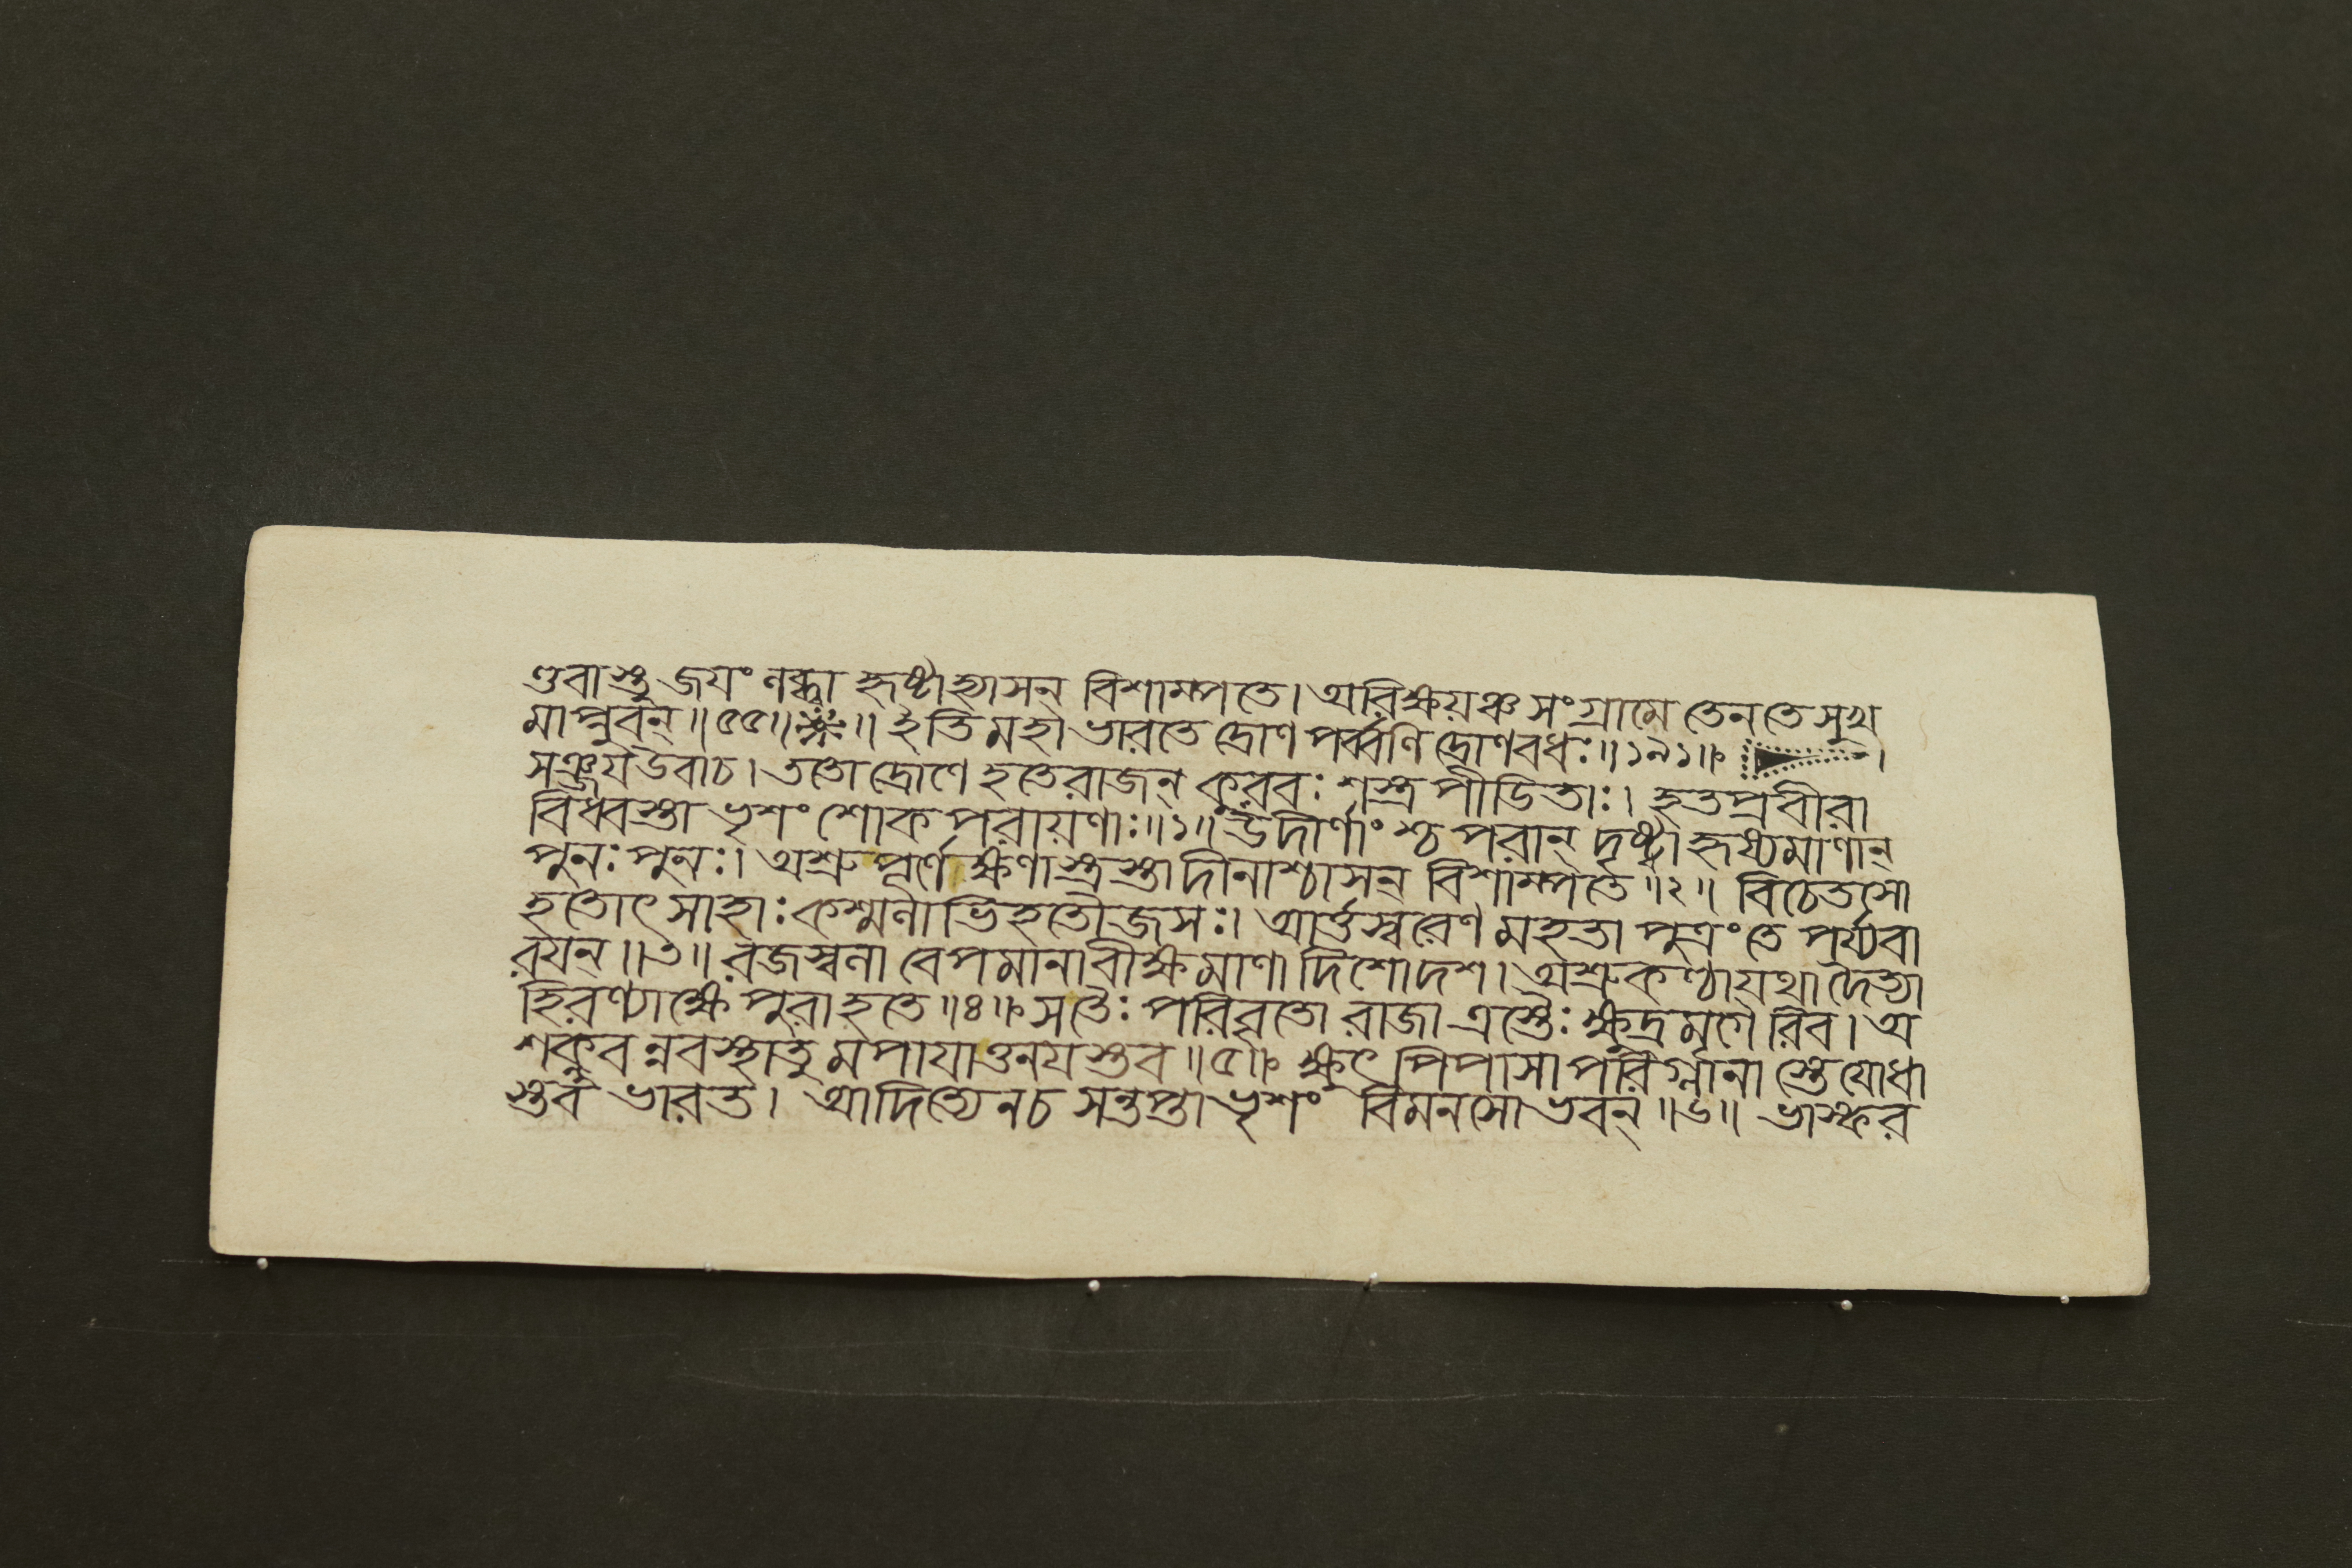 ণ্ডবাস্তু জয়ং লব্ধ্বা হৃষ্টাহ্যাসন্ বিশাম্পতে। অরিক্ষয়ঞ্চ সংগ্রামে তেন তে সুখ
মাপ্নুবন্॥৫৫॥ ॥ ইতি মহাভারতে দ্রোণ পর্ব্বণি দ্রোণবধঃ॥১৯১॥ ।
সঞ্জয উবাচ। ততো দ্রোণে হতে রাজন্ কুরবঃ শস্ত্র পীডিতাঃ। হতপ্রবীরা
বিধ্বস্তা ভৃশং শোক পরায়ণাঃ॥১॥ উদীর্ণাংশ্চ পরান্ দৃষ্ট্বা হৃষ্যমাণান্
পুনঃ পুনঃ। অশ্রুপূর্ণেক্ষণাস্ত্রস্তা দীনাশ্চাসন্ বিশাম্পতে॥২॥ বিচেতসো
হতোৎসাহাঃ কশ্মলাভিহতৌজসঃ। আর্ত্তস্বরেণ মহতা পুত্রং তে পর্য্যবা
রযন্॥৩॥ রজস্বলা বেপমানা বীক্ষমাণা দিশোদশ। অশ্রুকণ্ঠা যথা দৈত্যা
হিরণ্যাক্ষে পুরা হতে॥৪॥ স তৈঃ পরিবৃতো রাজা ত্রস্তৈঃ ক্ষুদ্রমৃগৈ রিব। অ
শক্নুবন্নবস্থাতু মপাযাত্তনযস্তব॥৫॥ ক্ষুৎ পিপাসা পরির্ম্লানা স্তে যোধা
স্তব ভারত। আদিত্যেন চ সন্তপ্তা ভৃশং বিমনসো ভবন্॥৬॥ ভাস্কর